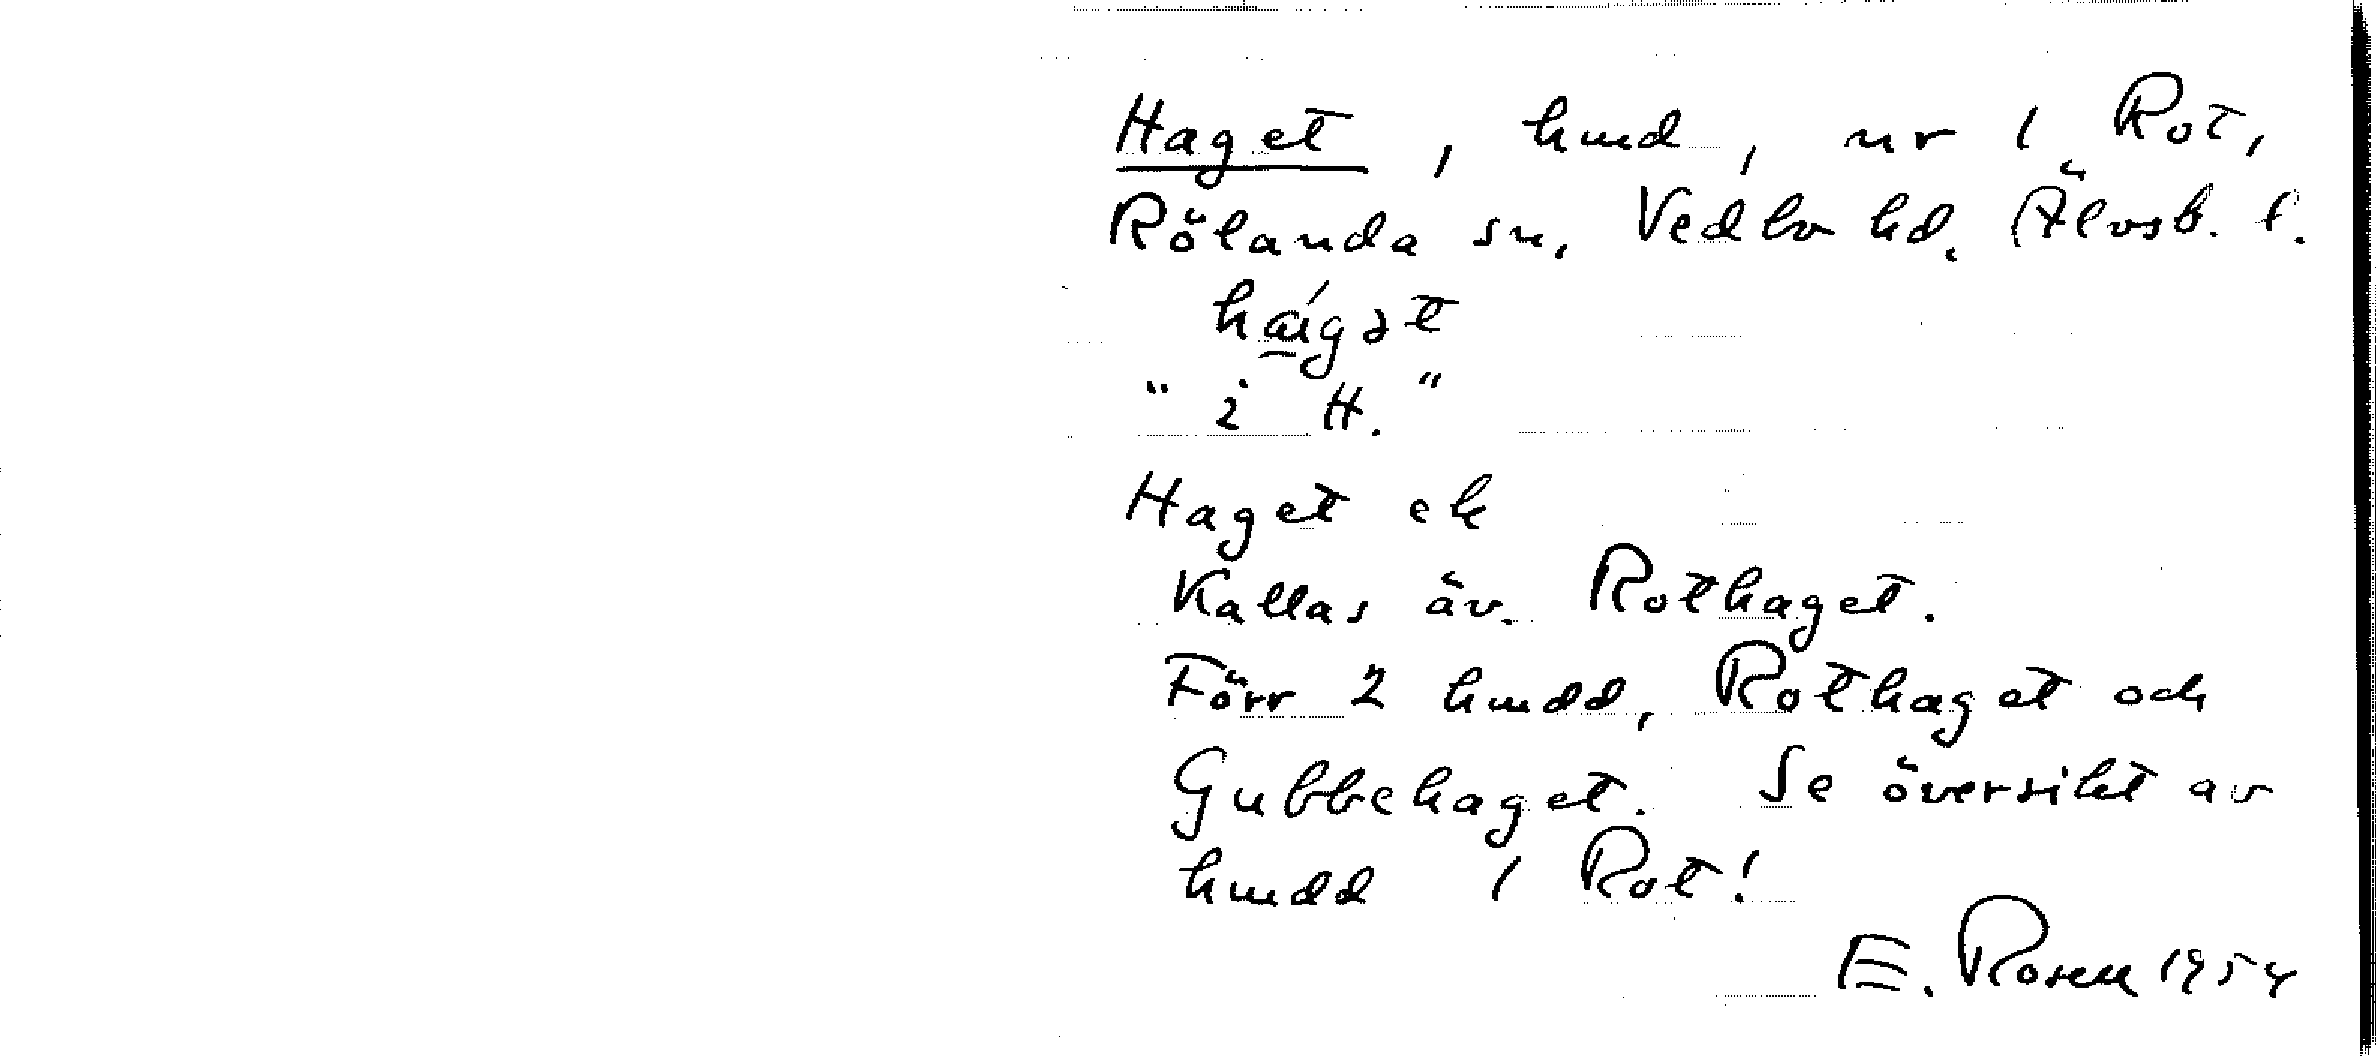 Haget, hmd, nr 1 Rot,
Rölanda sn, Vedbo hd. Älvsb. l.
hágət
"i H."
Haget ek
Kallas äv. Rothaget.
Förr 2 hmdd, Rothaget och
Gubbehaget. Se översikt av
hmdd 1 Rot!
E. Rosell 1954